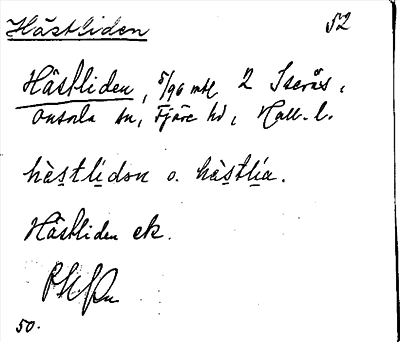 Hästliden 52
Hästliden, 5/96 mtl 2 Iserås,
Onsala sn, Fjäre hd, Hall. l.
hä̀s̱tli̱dən o. hä̀s̱tli̱a.
Hästliden ek.
50.